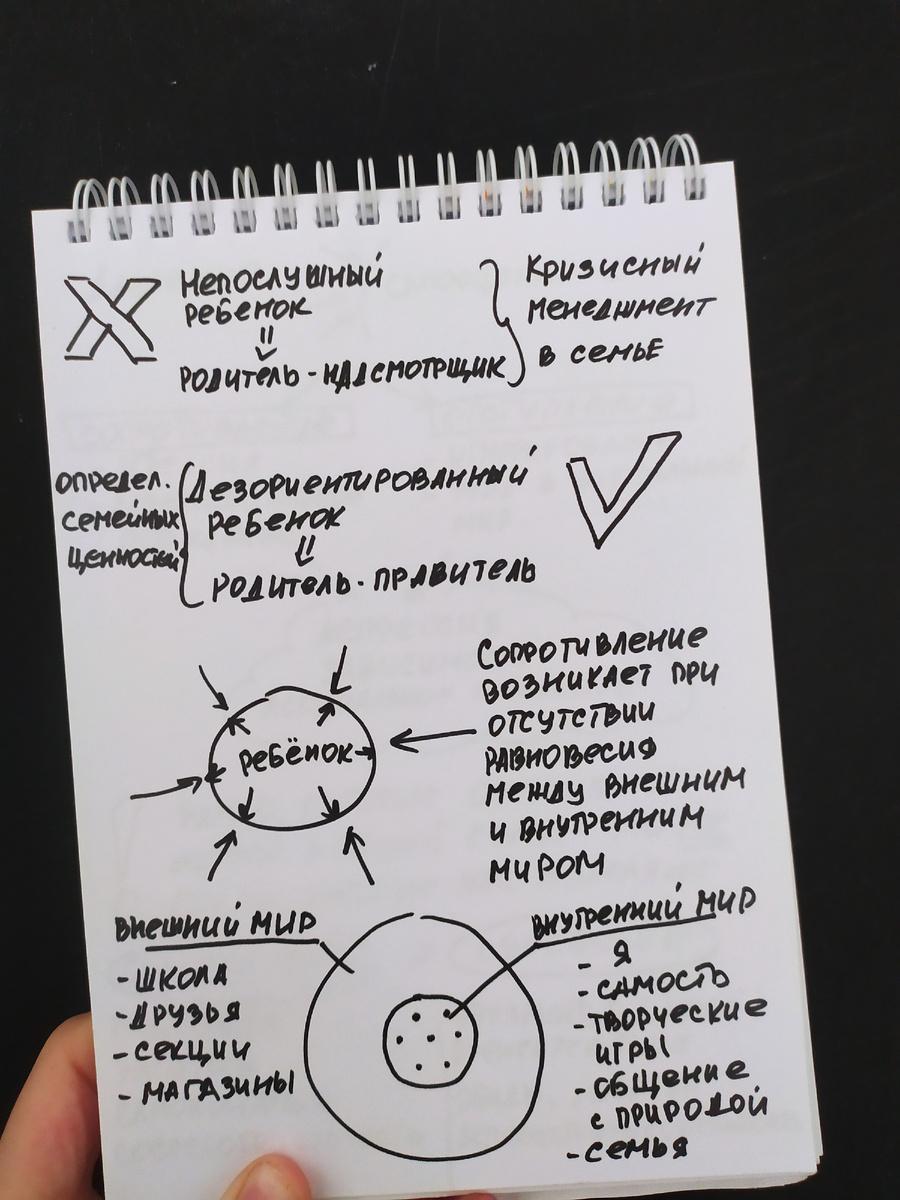 Непослушный
ребенок
Родитель-надсмотрщик
Кризисный
менеджмент
в семье
Определ.
семейных
ценностей
Дезориентированный
ребенок
Родитель-правитель
Ребёнок
Сопротивление
возникает при
отсутствии
равновесия
между внешним
и внутренним
миром
Внешний мир
- школа
- друзья
- секции
- магазины
Внутренний мир
- Я
- самость
- творческие
игры
- общение
с природой
- семья